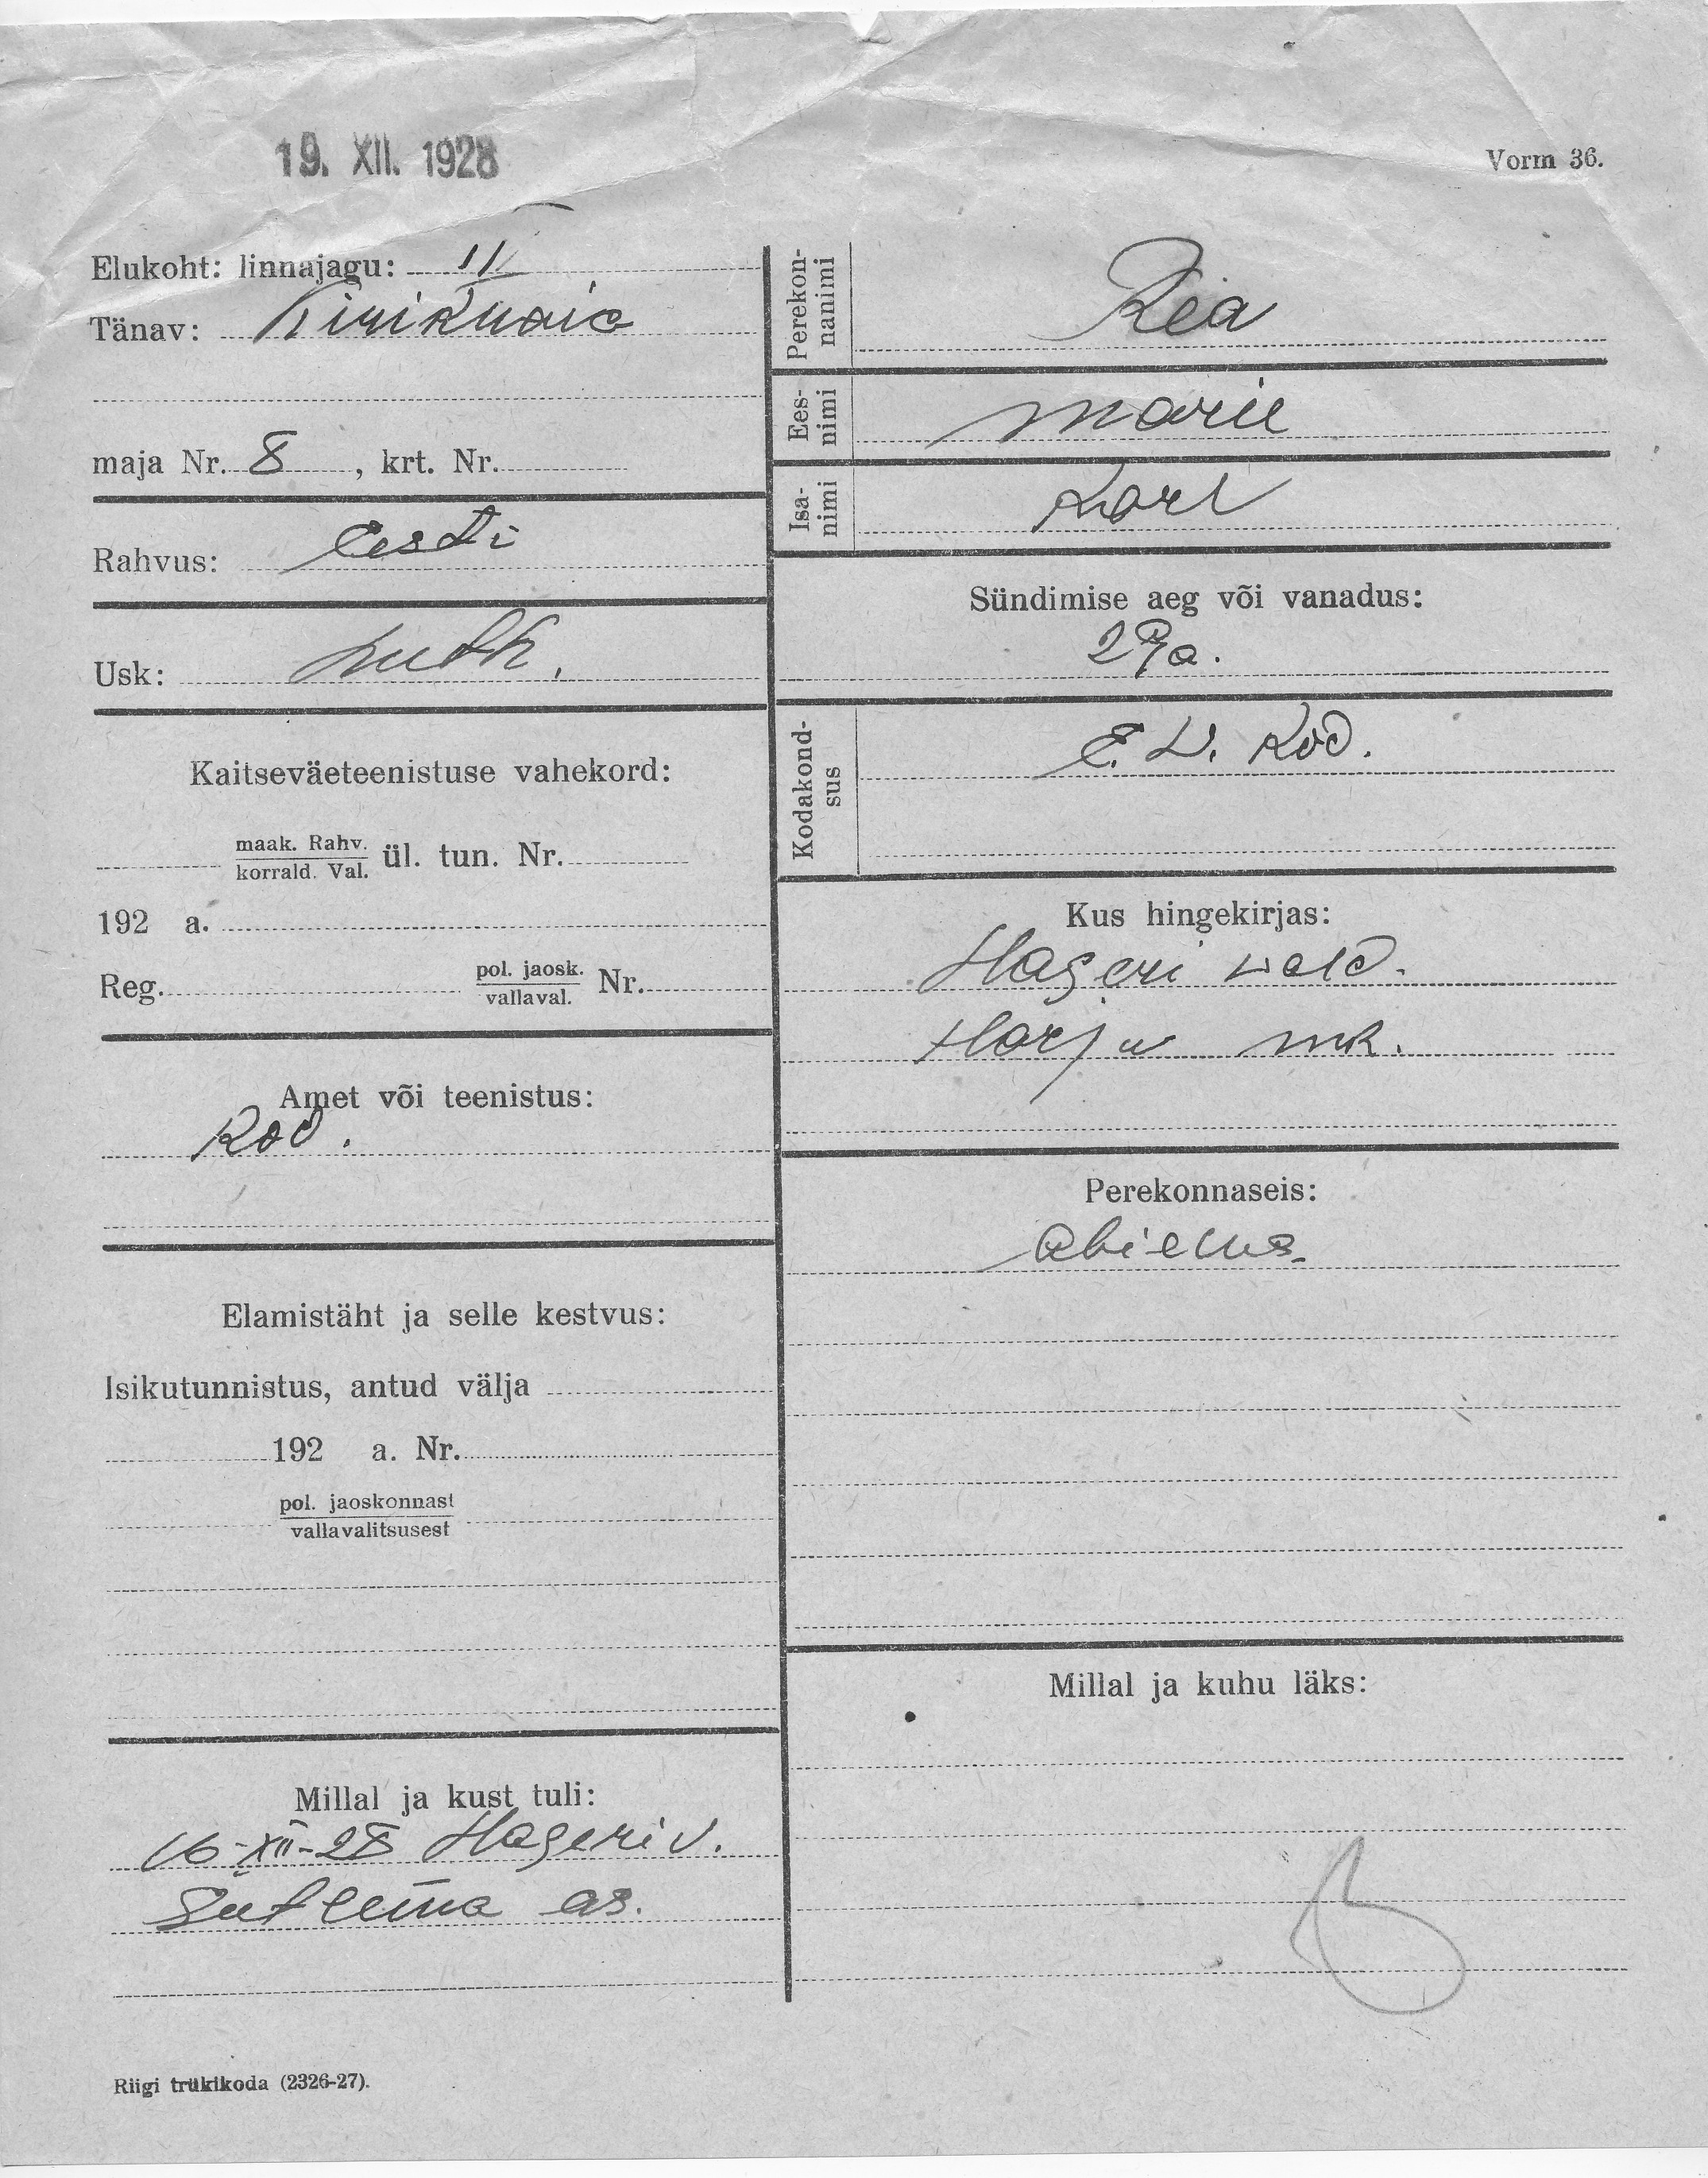 19. XII. 1928
Vorm 36.
Elukoht: linnajagu: II
Tänav:
maja Nr. 8, krt. Nr.
Rahvus: Eesti
Usk: Luth.
Kaitseväeteenistuse vahekord:
maak. Rahv.
korrald. Val.
ül. tun. Nr.
192 a.
Reg. pol. jaosk.
vallaval.
Nr.
Amet või teenistus:
Kod.
Elamistäht ja selle kestvus:
Isikutunnistus, antud välja
192 a. Nr.
pol. jaoskonnast
vallavalitsusest
Millal ja kust tuli:
16-XII-28 Hageri v.
Sutlema as.
Riigi trükikoda (2326-27).
Perekon-
nanimi
Rea
Ees-
nimi
Marie
Isa-
nimi
Karl
Sündimise aeg või vanadus:
29 a.
Kodakond-
sus
E. W. Kod.
Kus hingekirjas:
Hageri wald.
Harju mk.
Perekonnaseis:
Abielus.
Millal ja kuhu läks: